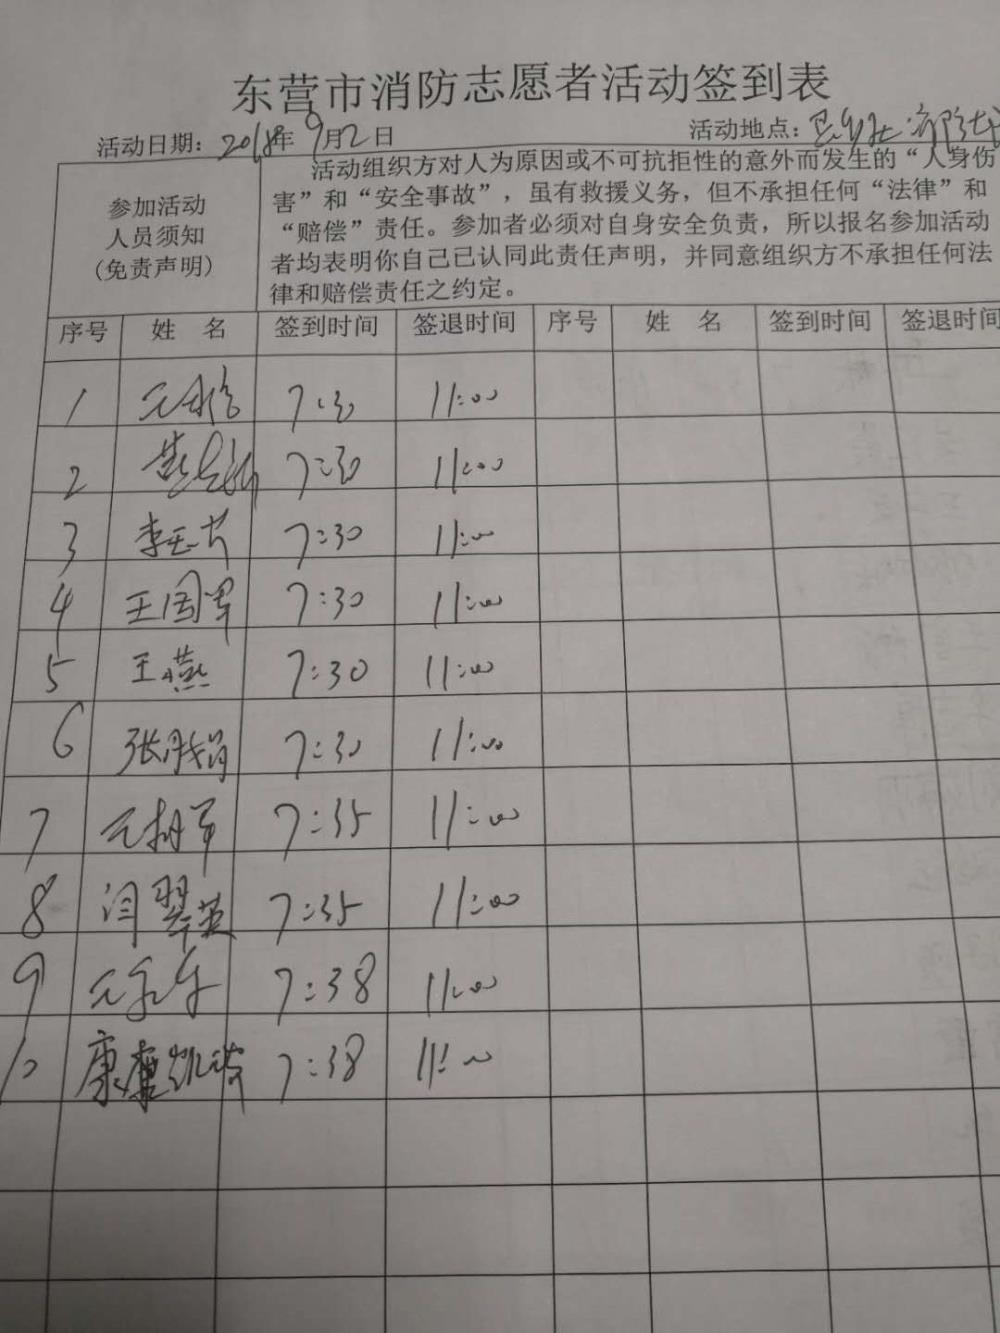 东营市消防志愿者活动签到表
活动日期：2018年9月2日 活动地点：
参加活动
人员须知
(免责声明)
活动组织方对人为原因或不可抗拒性的意外而发生的“人身伤
害”和“安全事故”，虽有救援义务，但不承担任何“法律”和
“赔偿”责任。参加者必须对自身安全负责，所以报名参加活动
者均表明你自己已认同此责任声明，并同意组织方不承担任何法
律和赔偿责任之约定。
序号 姓 名 签到时间 签退时间 序号 姓 名 签到时间 签退时间
1 7:30 11:00
2 7:30 11:00
3 李玉芹 7:30 11:00
4 王国军 7:30 11:00
5 王燕 7:30 11:00
6 张胜娟 7:30 11:00
7 7:35 11:00
8 闫翠英 7:35 11:00
9 7:38 11:00
10 7:38 11:00